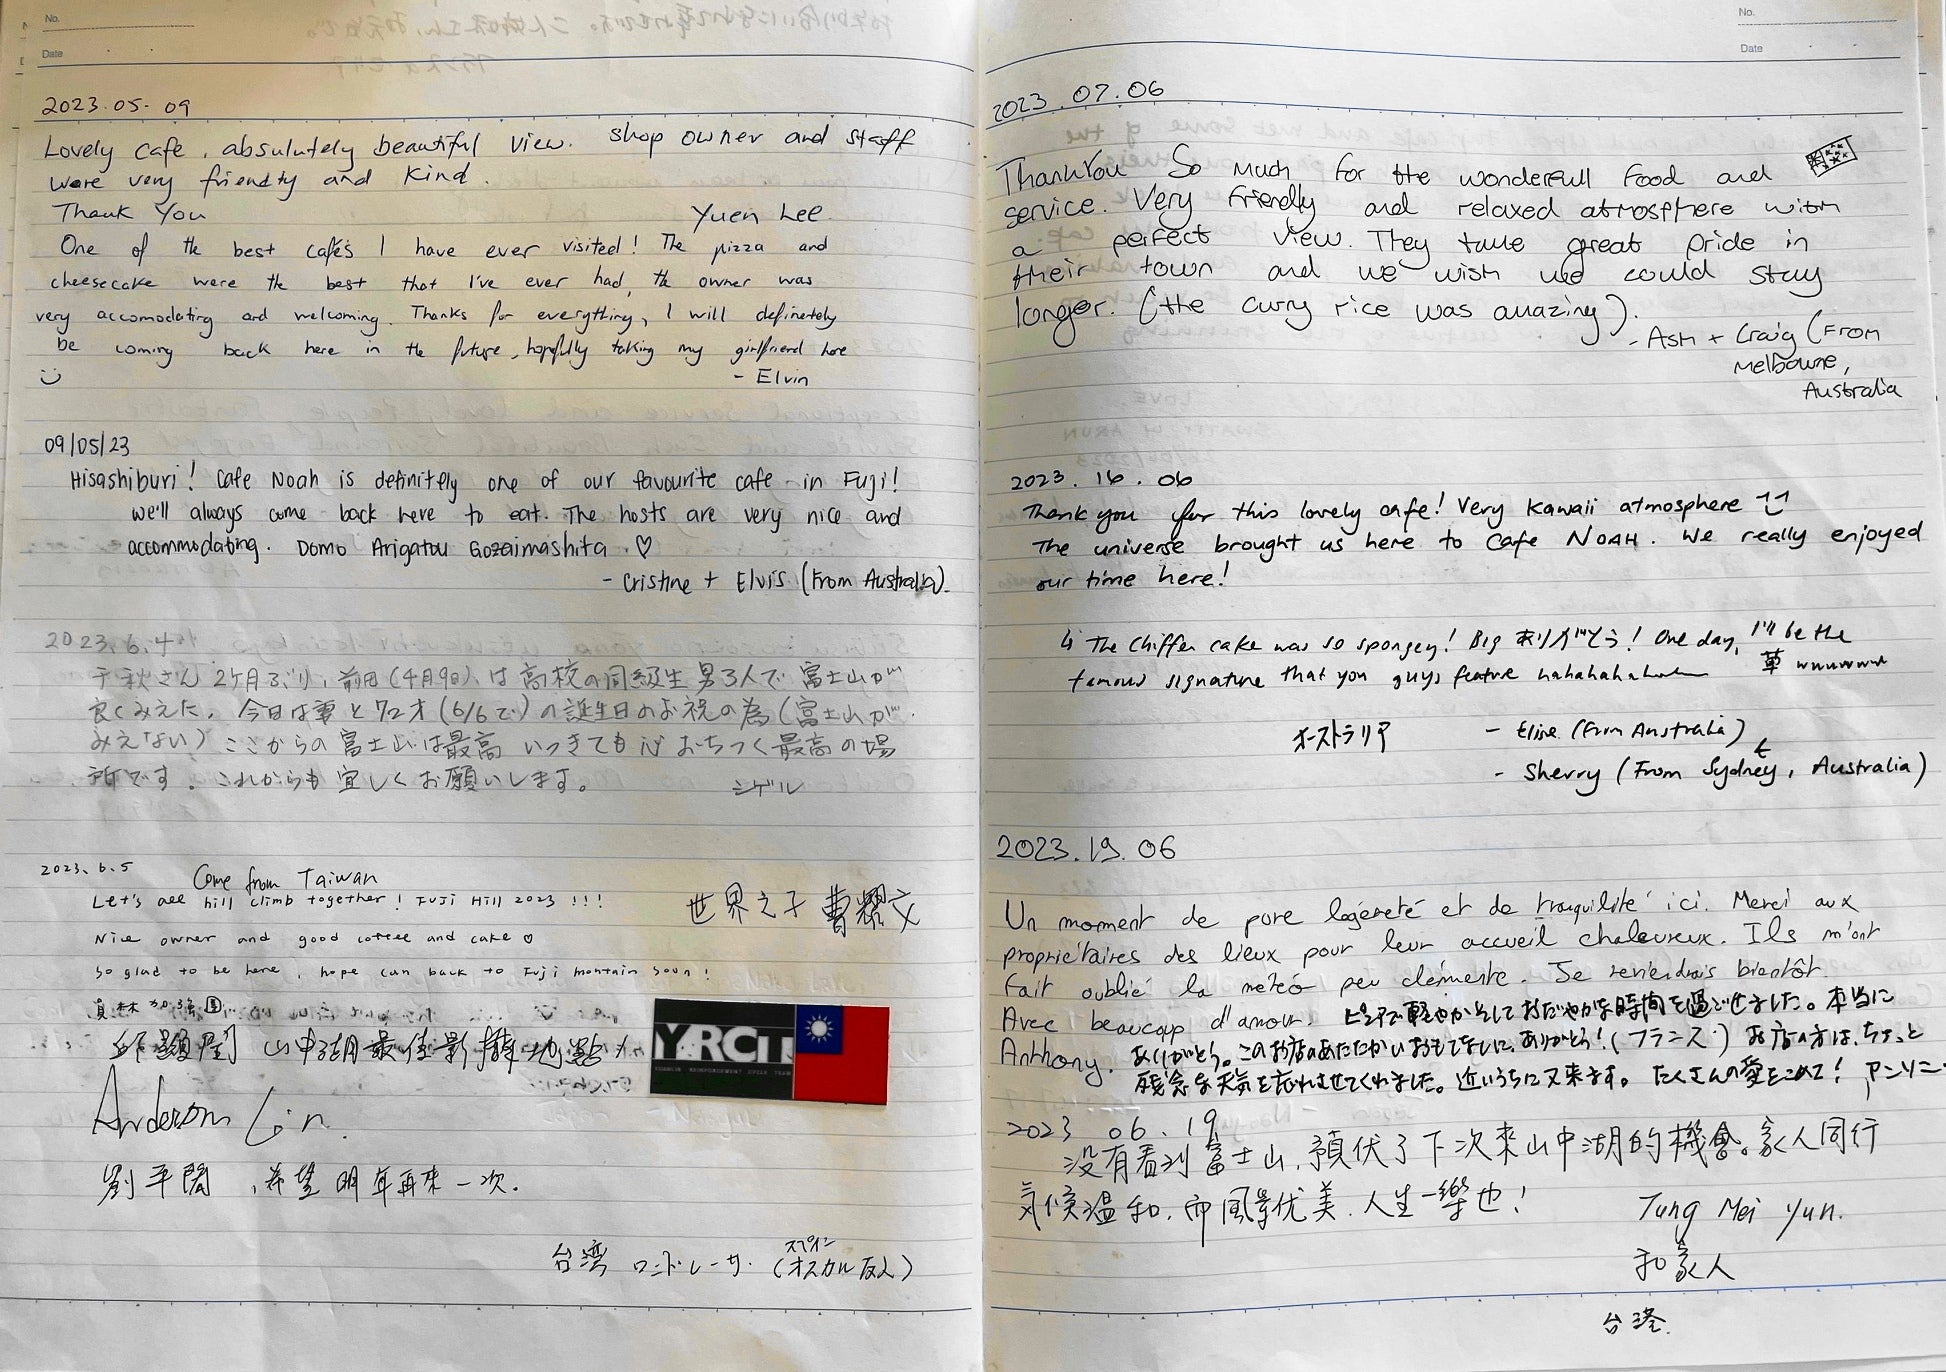 No.
Date
2023.05.09
Lovely Cafe, absulutely beautiful view. Shop owner and staff
were very friendty and kind.
Thank You
Yuen Lee.
One of the best cafés I have ever visited! The pizza and
cheesecake were the best that I've ever had, the owner was
very accomodating and welcoming. Thanks for everything, I will definetely
be coming back here in the future, hopfully taking my girlfriend here
- Elvin
09/05/23
Hisashiburi! Cafe Noah is definitely one of our favourite cafe in Fuji!
we'll always come back here to eat. The hosts are very nice and
accommodating. Domo Arigatou Gozaimashita. ♡
- Cristine + Elvis (From Australia).
2023.6.4
千秋さん 2ケ月ぶり、前回(4月9日)は高校の同級生男3人で富士山が
良くみえた。今日は妻と72才(6/6で)の誕生日のお祝の為(富士山が
みえない)ここからの富士山は最高 いつきても心おちつく最高の場
所です。これからも宜しくお願いします。
シゲル
2023.6.5
Come from Taiwan
Let's all hill climb together! FUJI Hill 2023 !!!
世界之子 曹耀文
Nice owner and good coffee and cake ♡
So glad to be here, hope can back to Fuji montain soon!
山中湖最佳影 地點
YRCT
Anderson Lin.
劉平 ,希望明年再來一次.
台湾 ロードレーサ.
スペイン
(オスカル友人)
No.
Date
2023.07.06
ThankYou So Much For the wonderfull food and
service. Very Friendly and relaxed atmosphere with
a perfect view. They take great pride in
their town and we wish we could stay
longer. (the curry rice was amazing).
- Ash + Craig (From
Melbourne,
Australia
2023.16.06
Thank you for this lovely cafe! Very Kawaii atmosphere
The universe brought us here to Cafe NOAH. We really enjoyed
our time here!
↳ The Chiffer cake was so spongey! Big ありがとう! One day, I'll be the
famous signature that you guys feature hahahahaha 草wwwwww
オーストラリア
- Elise (From Australia)
- Sherry (From Sydney, Australia)
2023.19.06
Un moment de pure légèreté et de tranquilité ici. Merci aux
propriétaires des lieux pour leur accueil chaleureux. Ils m'ont
Fait oublié la météo peu clémente. Je reviendrais bientôt.
Avec beaucoup d'amour. ピュアで軽やかそしておだやかな時間を過ごせました。本当に
Anthony. ありがとう。このお店のあたたかいおもてなしに、ありがとう!(フランス) お店の方は、ちょっと
残念な天気を忘れさせてくれました。近いうちに又来ます。たくさんの愛をこめて! アンソニー
2023 06.19
没有看到富士山,預伏了下次來山中湖的機會。家人同行
気候温和,而風景优美.人生一樂也!
Tung Mei Yun.
和家人
台湾.